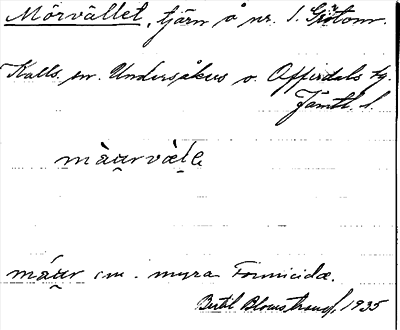 Mörvället, tjärn å nr. 1. Grötom.
Kalls sn. Undersåkers o. Offerdals tg.
Jämtl. l.
màu̯rvæ̀l̥e
máu̯r sm. myra Formicidæ.
Bertil Blomstrand, 1935